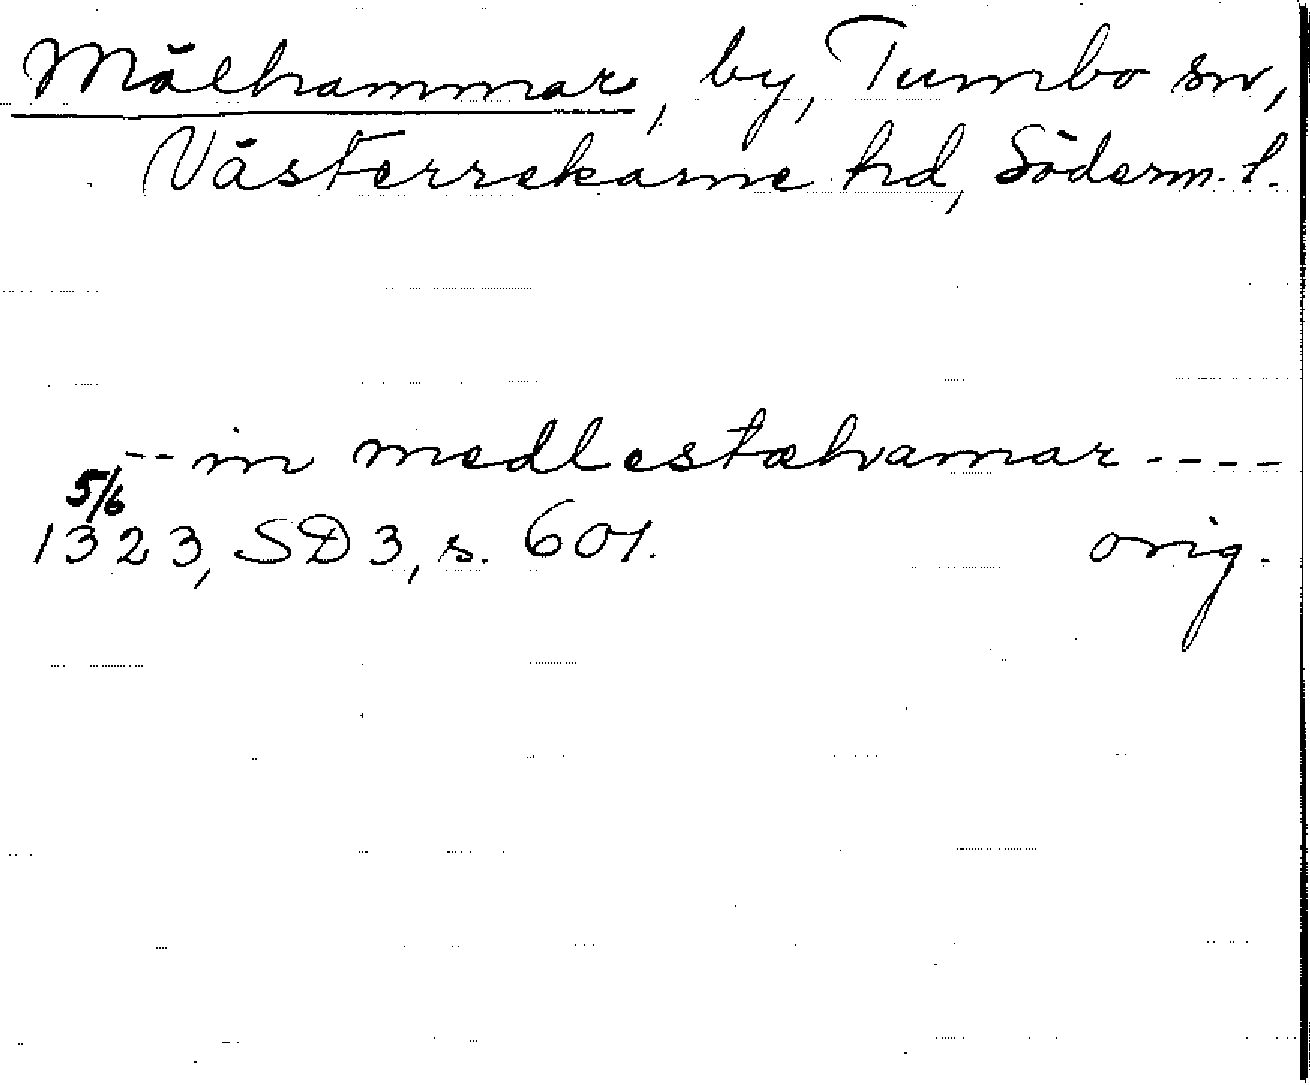 Mälhammar, by, Tumbo sn,
Västerrekarne hd, Söderm. l.
-- in medlestæhvamar ----
5/6
1323, SD 3, s. 601. orig.